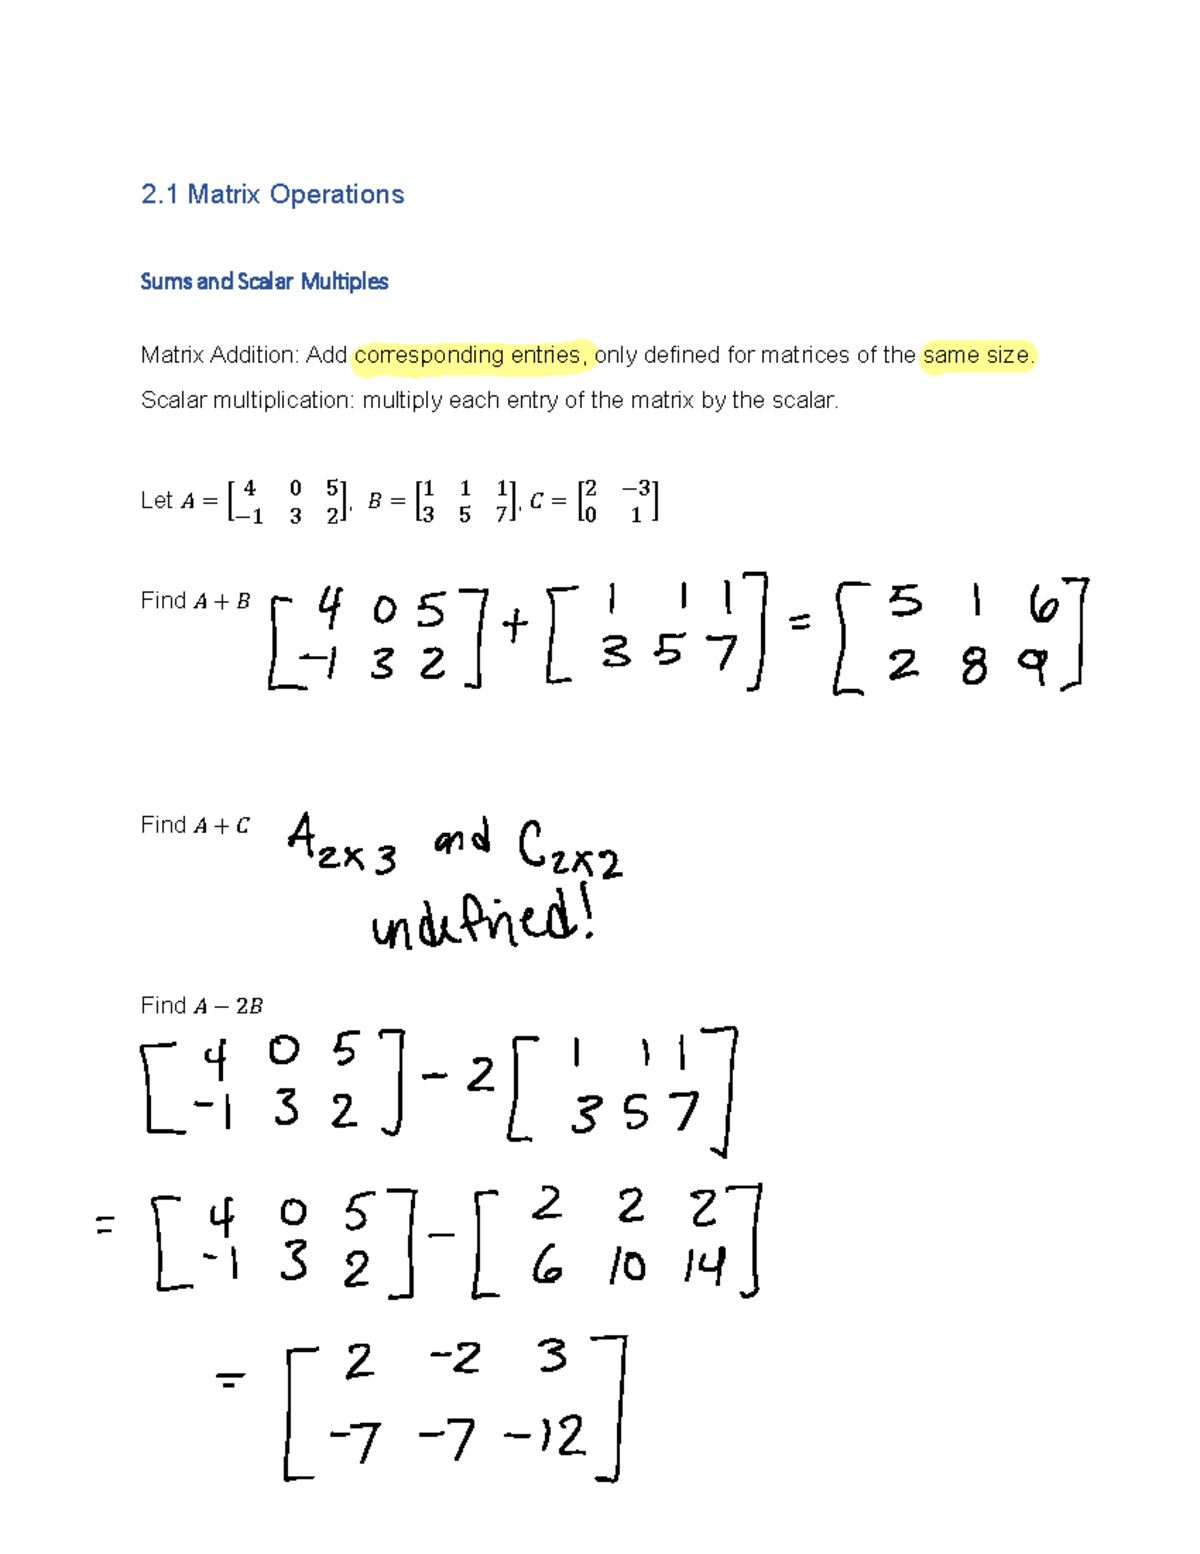 2.1 Matrix Operations
Sums and Scalar Multiples
Matrix Addition: Add corresponding entries, only defined for matrices of the same size.
Scalar multiplication: multiply each entry of the matrix by the scalar.
Let A = [4 0 5; −1 3 2], B = [1 1 1; 3 5 7], C = [2 −3; 0 1]
Find A + B [4 0 5; -1 3 2] + [1 1 1; 3 5 7] = [5 1 6; 2 8 9]
Find A + C A 2x3 and C 2x2
undefined!
Find A − 2B
[4 0 5; -1 3 2] - 2 [1 1 1; 3 5 7]
= [4 0 5; -1 3 2] - [2 2 2; 6 10 14]
= [2 -2 3; -7 -7 -12]